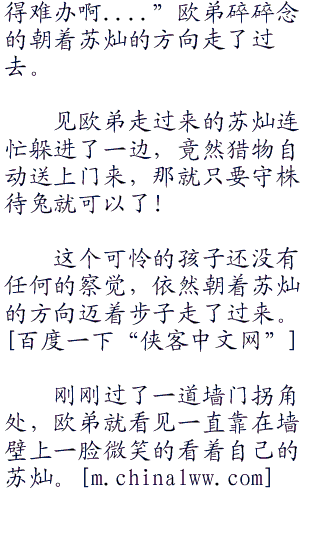 得难办啊....”欧弟碎碎念
的朝着苏灿的方向走了过
去。
见欧弟走过来的苏灿连
忙躲进了一边，竟然猎物自
动送上门来，那就只要守株
待兔就可以了！
这个可怜的孩子还没有
任何的察觉，依然朝着苏灿
的方向迈着步子走了过来。
[百度一下“侠客中文网”]
刚刚过了一道墙门拐角
处，欧弟就看见一直靠在墙
壁上一脸微笑的看着自己的
苏灿。[m.china1ww.com]